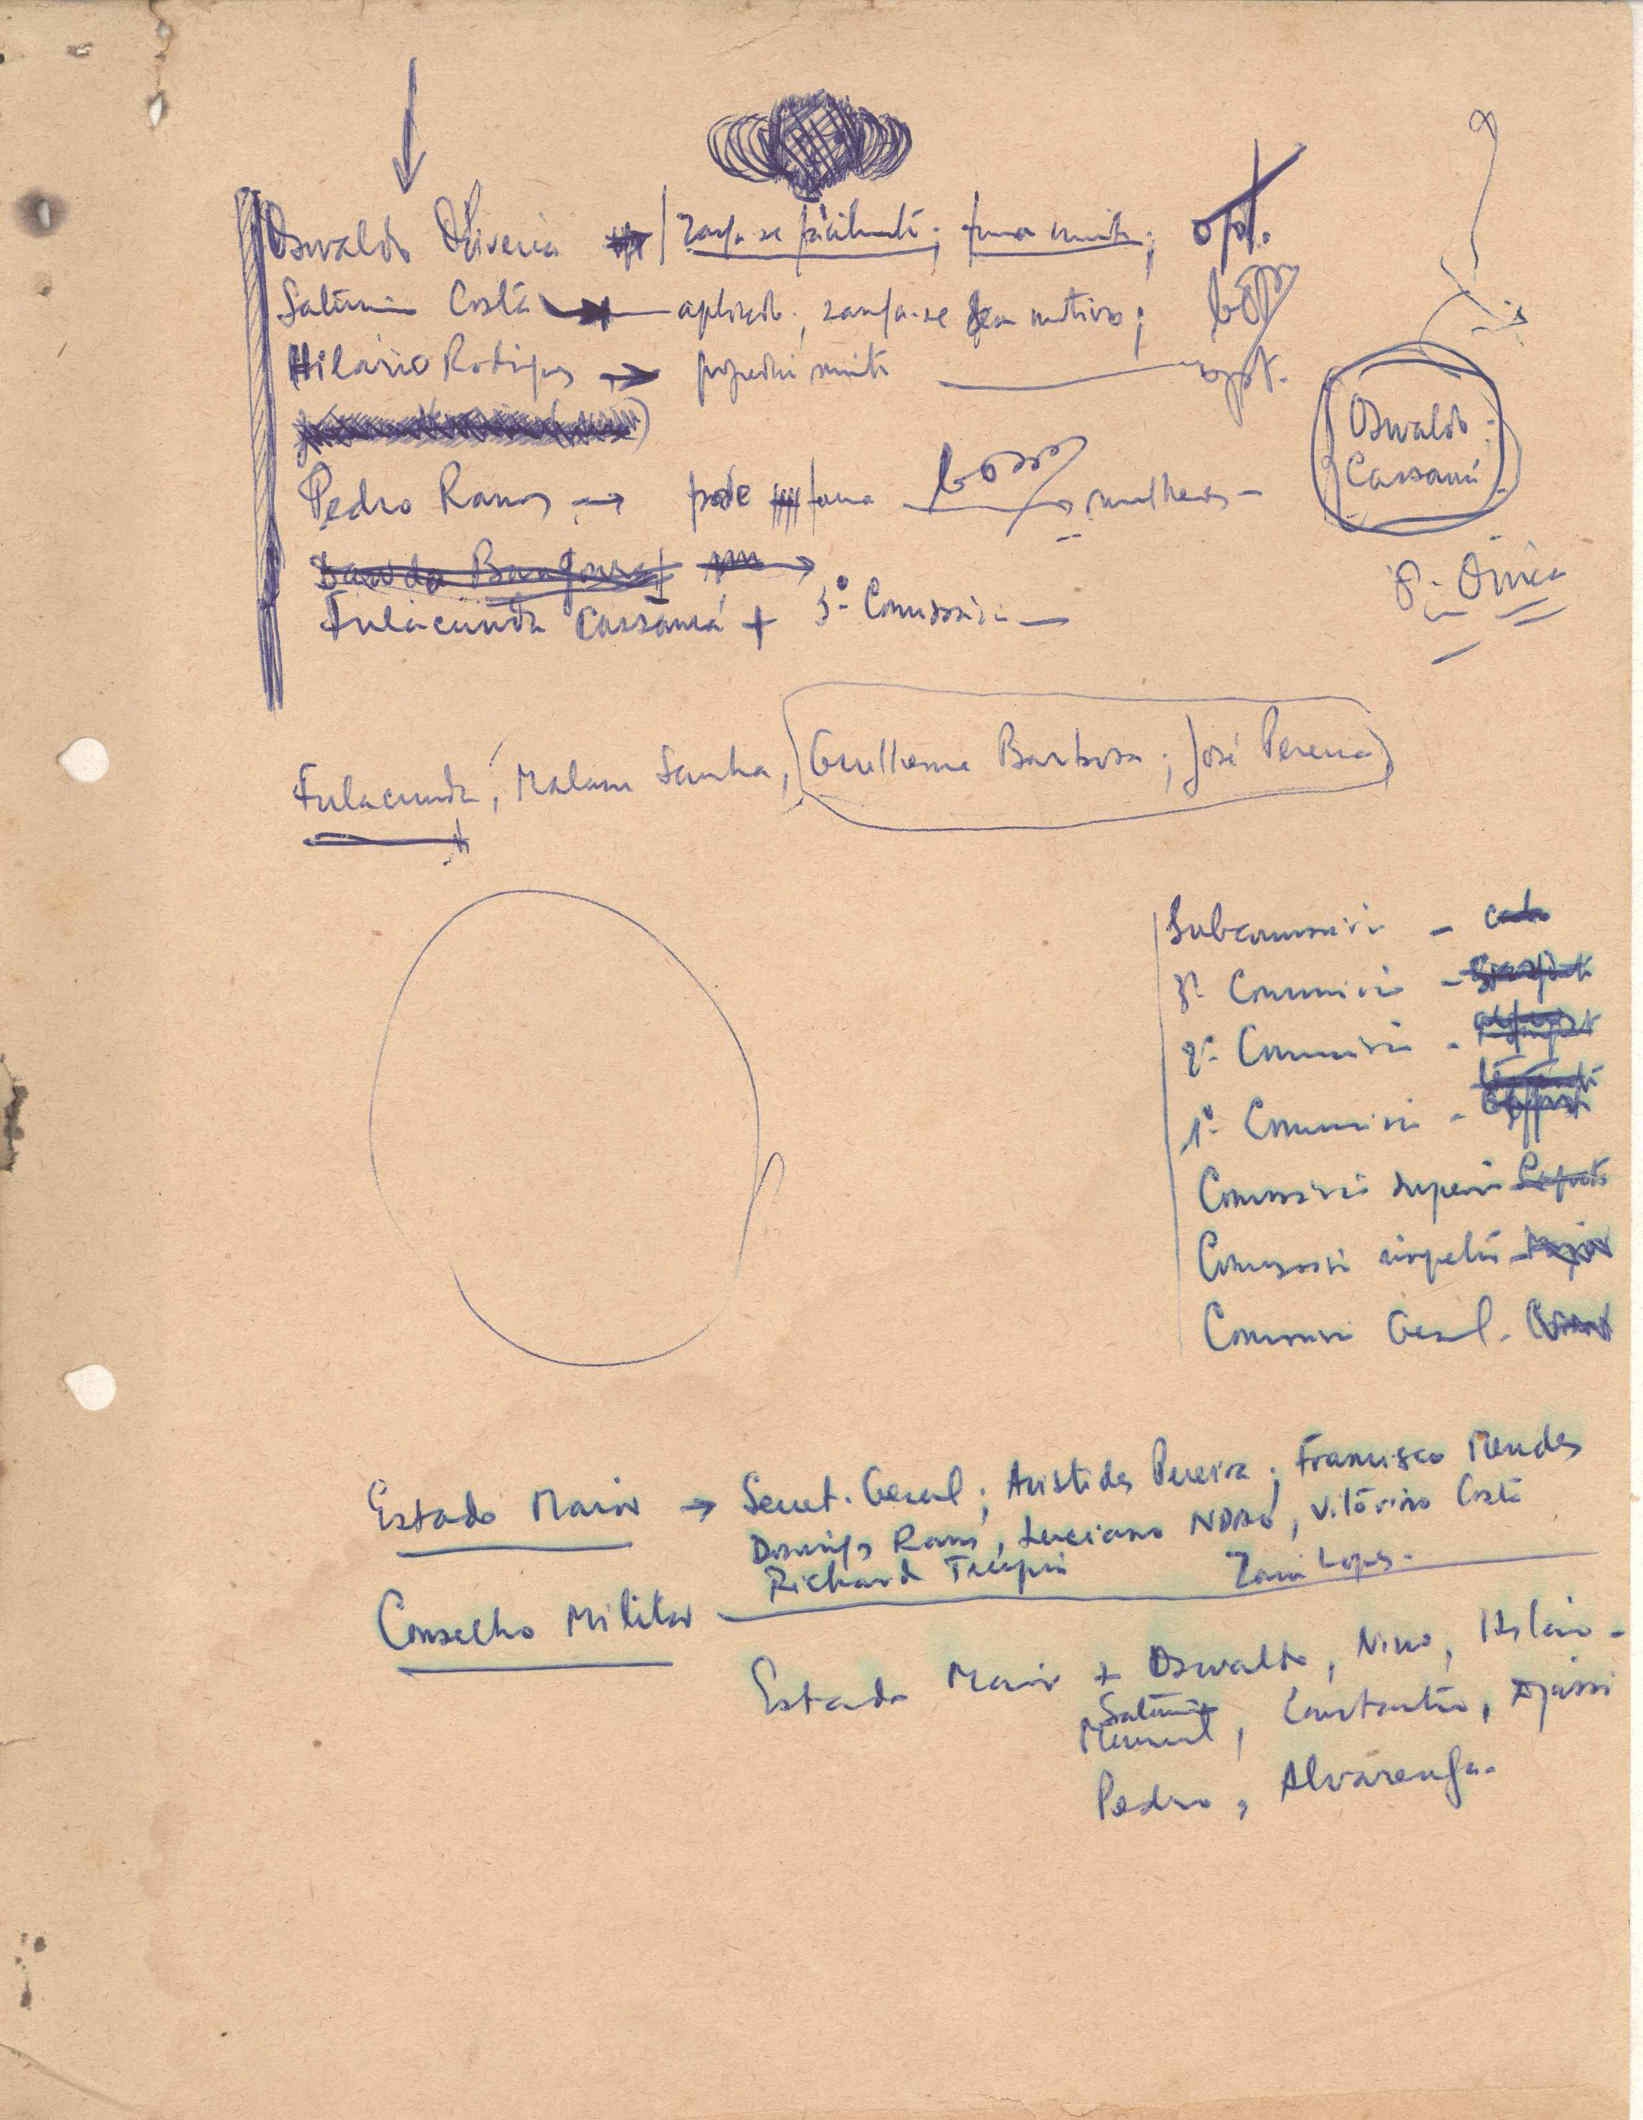 Osvaldo Oliveira zanga-se fàcilmente; fuma muito; opt.
Saturnino Costa → aplicado; zanga-se sem motivos; bom
Hilário Rodrigues → muito opt.
Pedro Ramos → pode fuma bom mulheres -
Dauda Bangoura →
Fulacunda Cassamá + 3º Comissário —
Osvaldo
Cassamá
Fulacunda, Malam Sanha, Guilherme Barbosa; José Pereira
Subcomissário - cabo
3º Comissário -
2º Comissário -
1º Comissário -
Comissário superior
Comissário inspector - Major
Comissário Geral -
Estado Maior → Secret. Geral; Aristides Pereira; Francisco Mendes
Domingos Ramos, Luciano NDao, Vitórino Costa
Richard Turpin Zain Lopes.
Conselho Militar
Estado Maior + Osvaldo, Nino, Hilário -
Saturnino
Manuel, Constantino, Djassi
Pedro, Alvarenga.